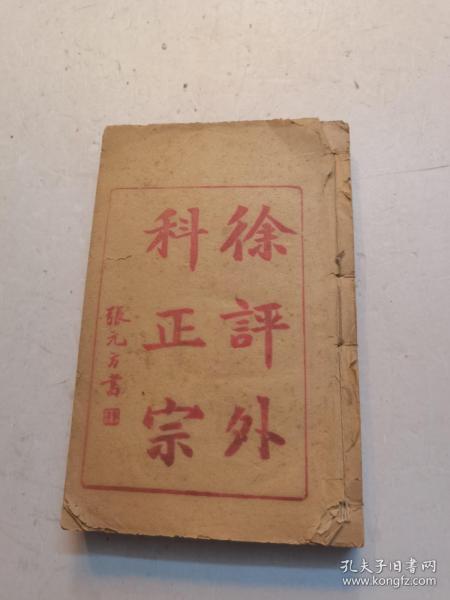 徐評外
科正宗
張元方書
孔夫子旧书网
www.kongfz.com